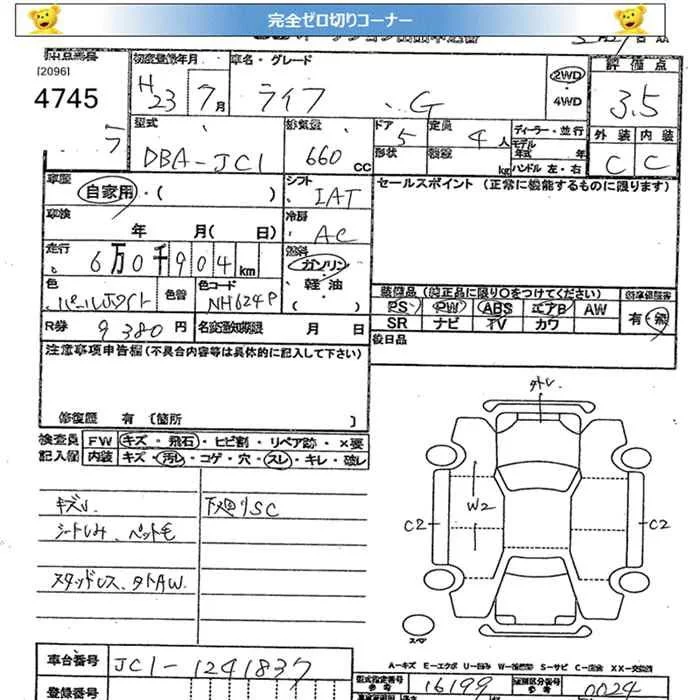 完全ゼロ切りコーナー
[2096]
4745
初度登録年月
H23 7月
車名・グレード
ライフ G
2WD
4WD
評価点
3.5
外装 内装
C C
型式
DBA-JC1
排気量
660 CC
ドア 5
形状
定員 4人
kg
ディーラー・並行
モデル年式 年
ハンドル 左・右
車歴
自家用・( )
シフト
IAT
セールスポイント (正常に機能するものに限ります)
車検
年 月( 日)
冷房
AC
走行
6万0千904km
燃料
ガソリン・軽油・( )
色
パールホワイト
色替
色コード
NH624P
装備品(純正品に限り○をつけてください)
PS PW ABS エアB AW
SR ナビ TV カワ
有・無
R券 9380円
名変通知期限 月 日
後日品
注意事項申告欄(不具合内容等は具体的に記入して下さい)
修復歴 有 [箇所 ]
検査員記入欄
FW キズ・飛石・ヒビ割・リペア跡・×要
内装 キズ・汚レ・コゲ・穴・スレ・キレ・破レ
キズU
下廻りSC
シートしみ、ペット毛
スタッドレス、タトAW
タトレ
W2
C2
C2
スペア
A-キズ E-エクボ U-凹み W-補修跡 S-サビ C-腐食 XX-交換済
車台番号
JC1-1241837
登録番号
型式指定番号
参考
16199
類別区分番号
参考
0024